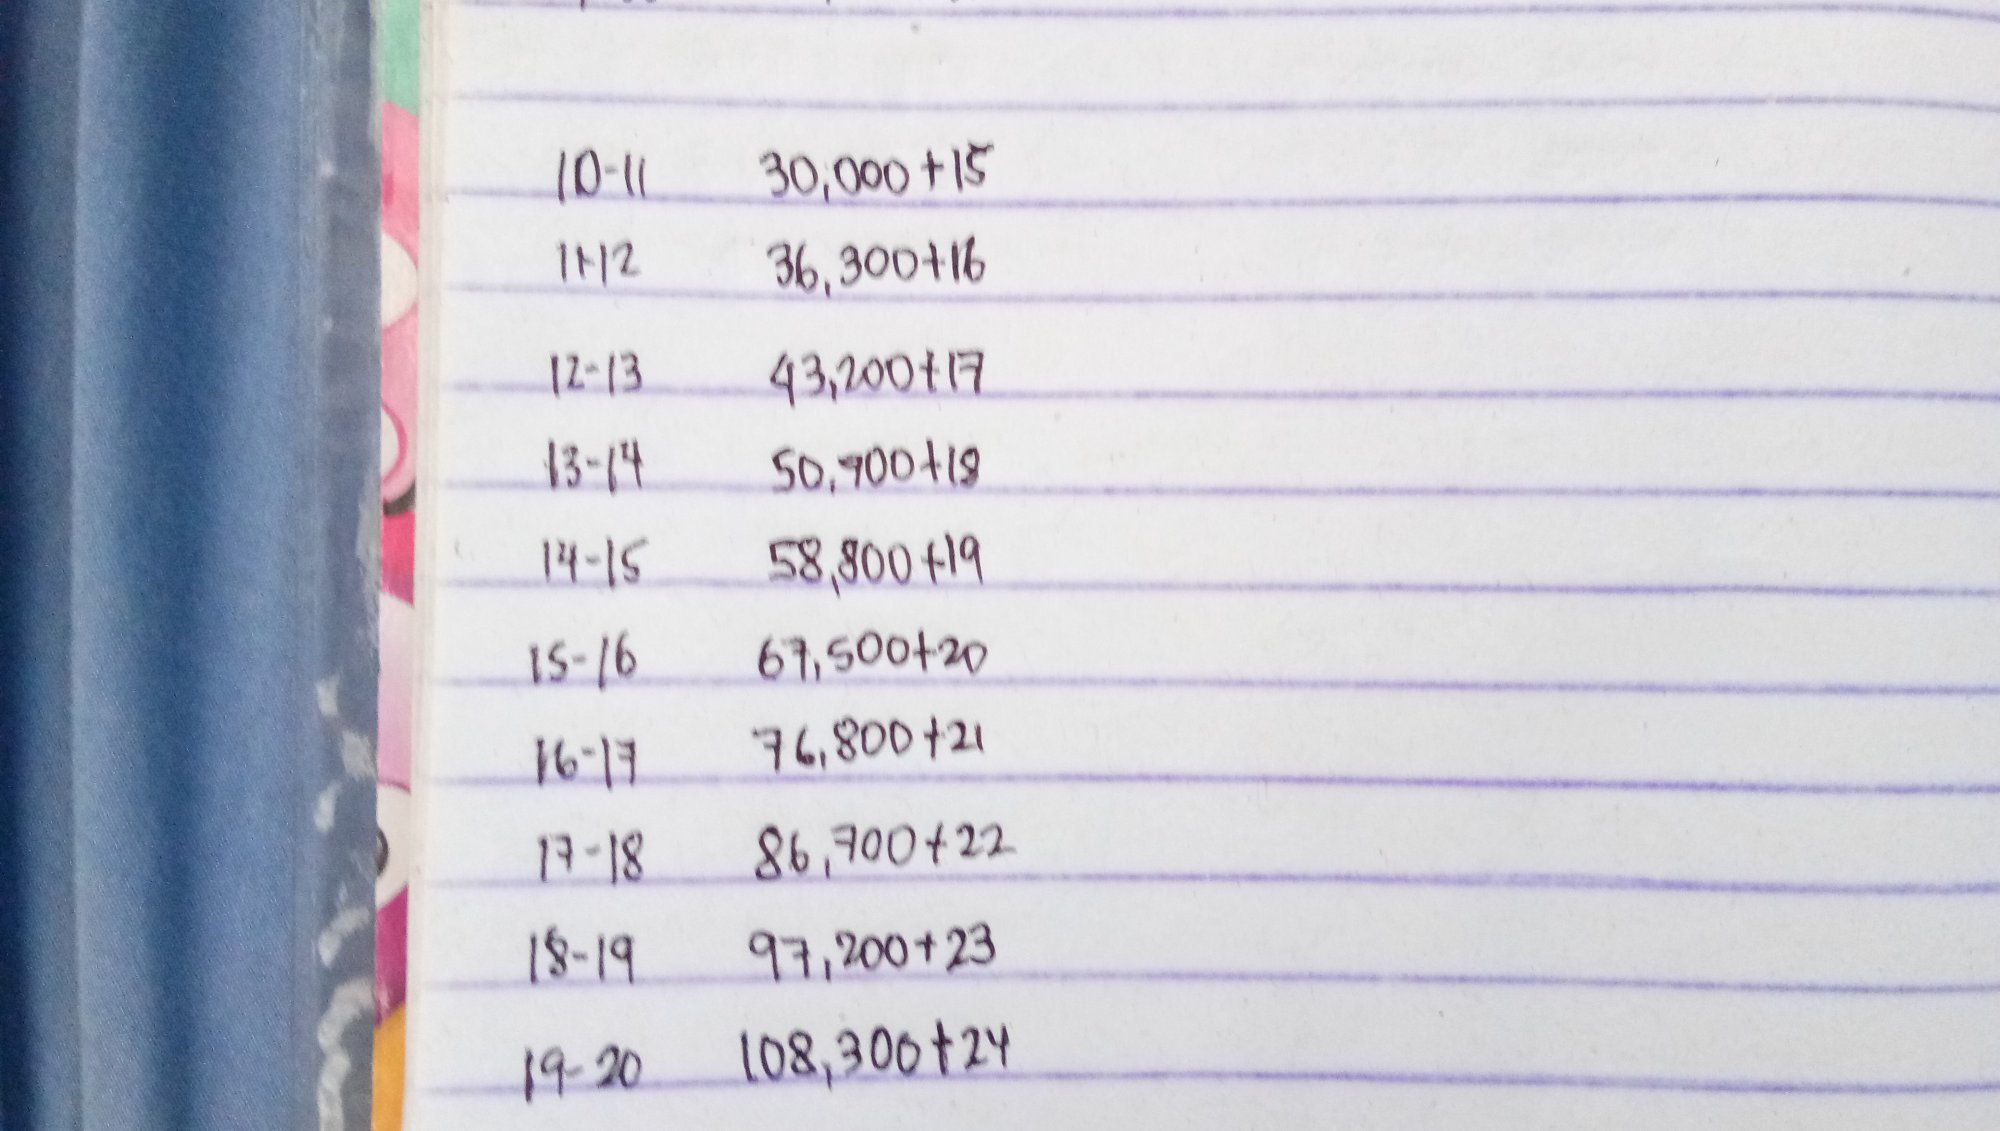 10-11 30,000+15
11-12 36,300+16
12-13 43,200+17
13-14 50,700+18
14-15 58,800+19
15-16 67,500+20
16-17 76,800+21
17-18 86,700+22
18-19 97,200+23
19-20 108,300+24